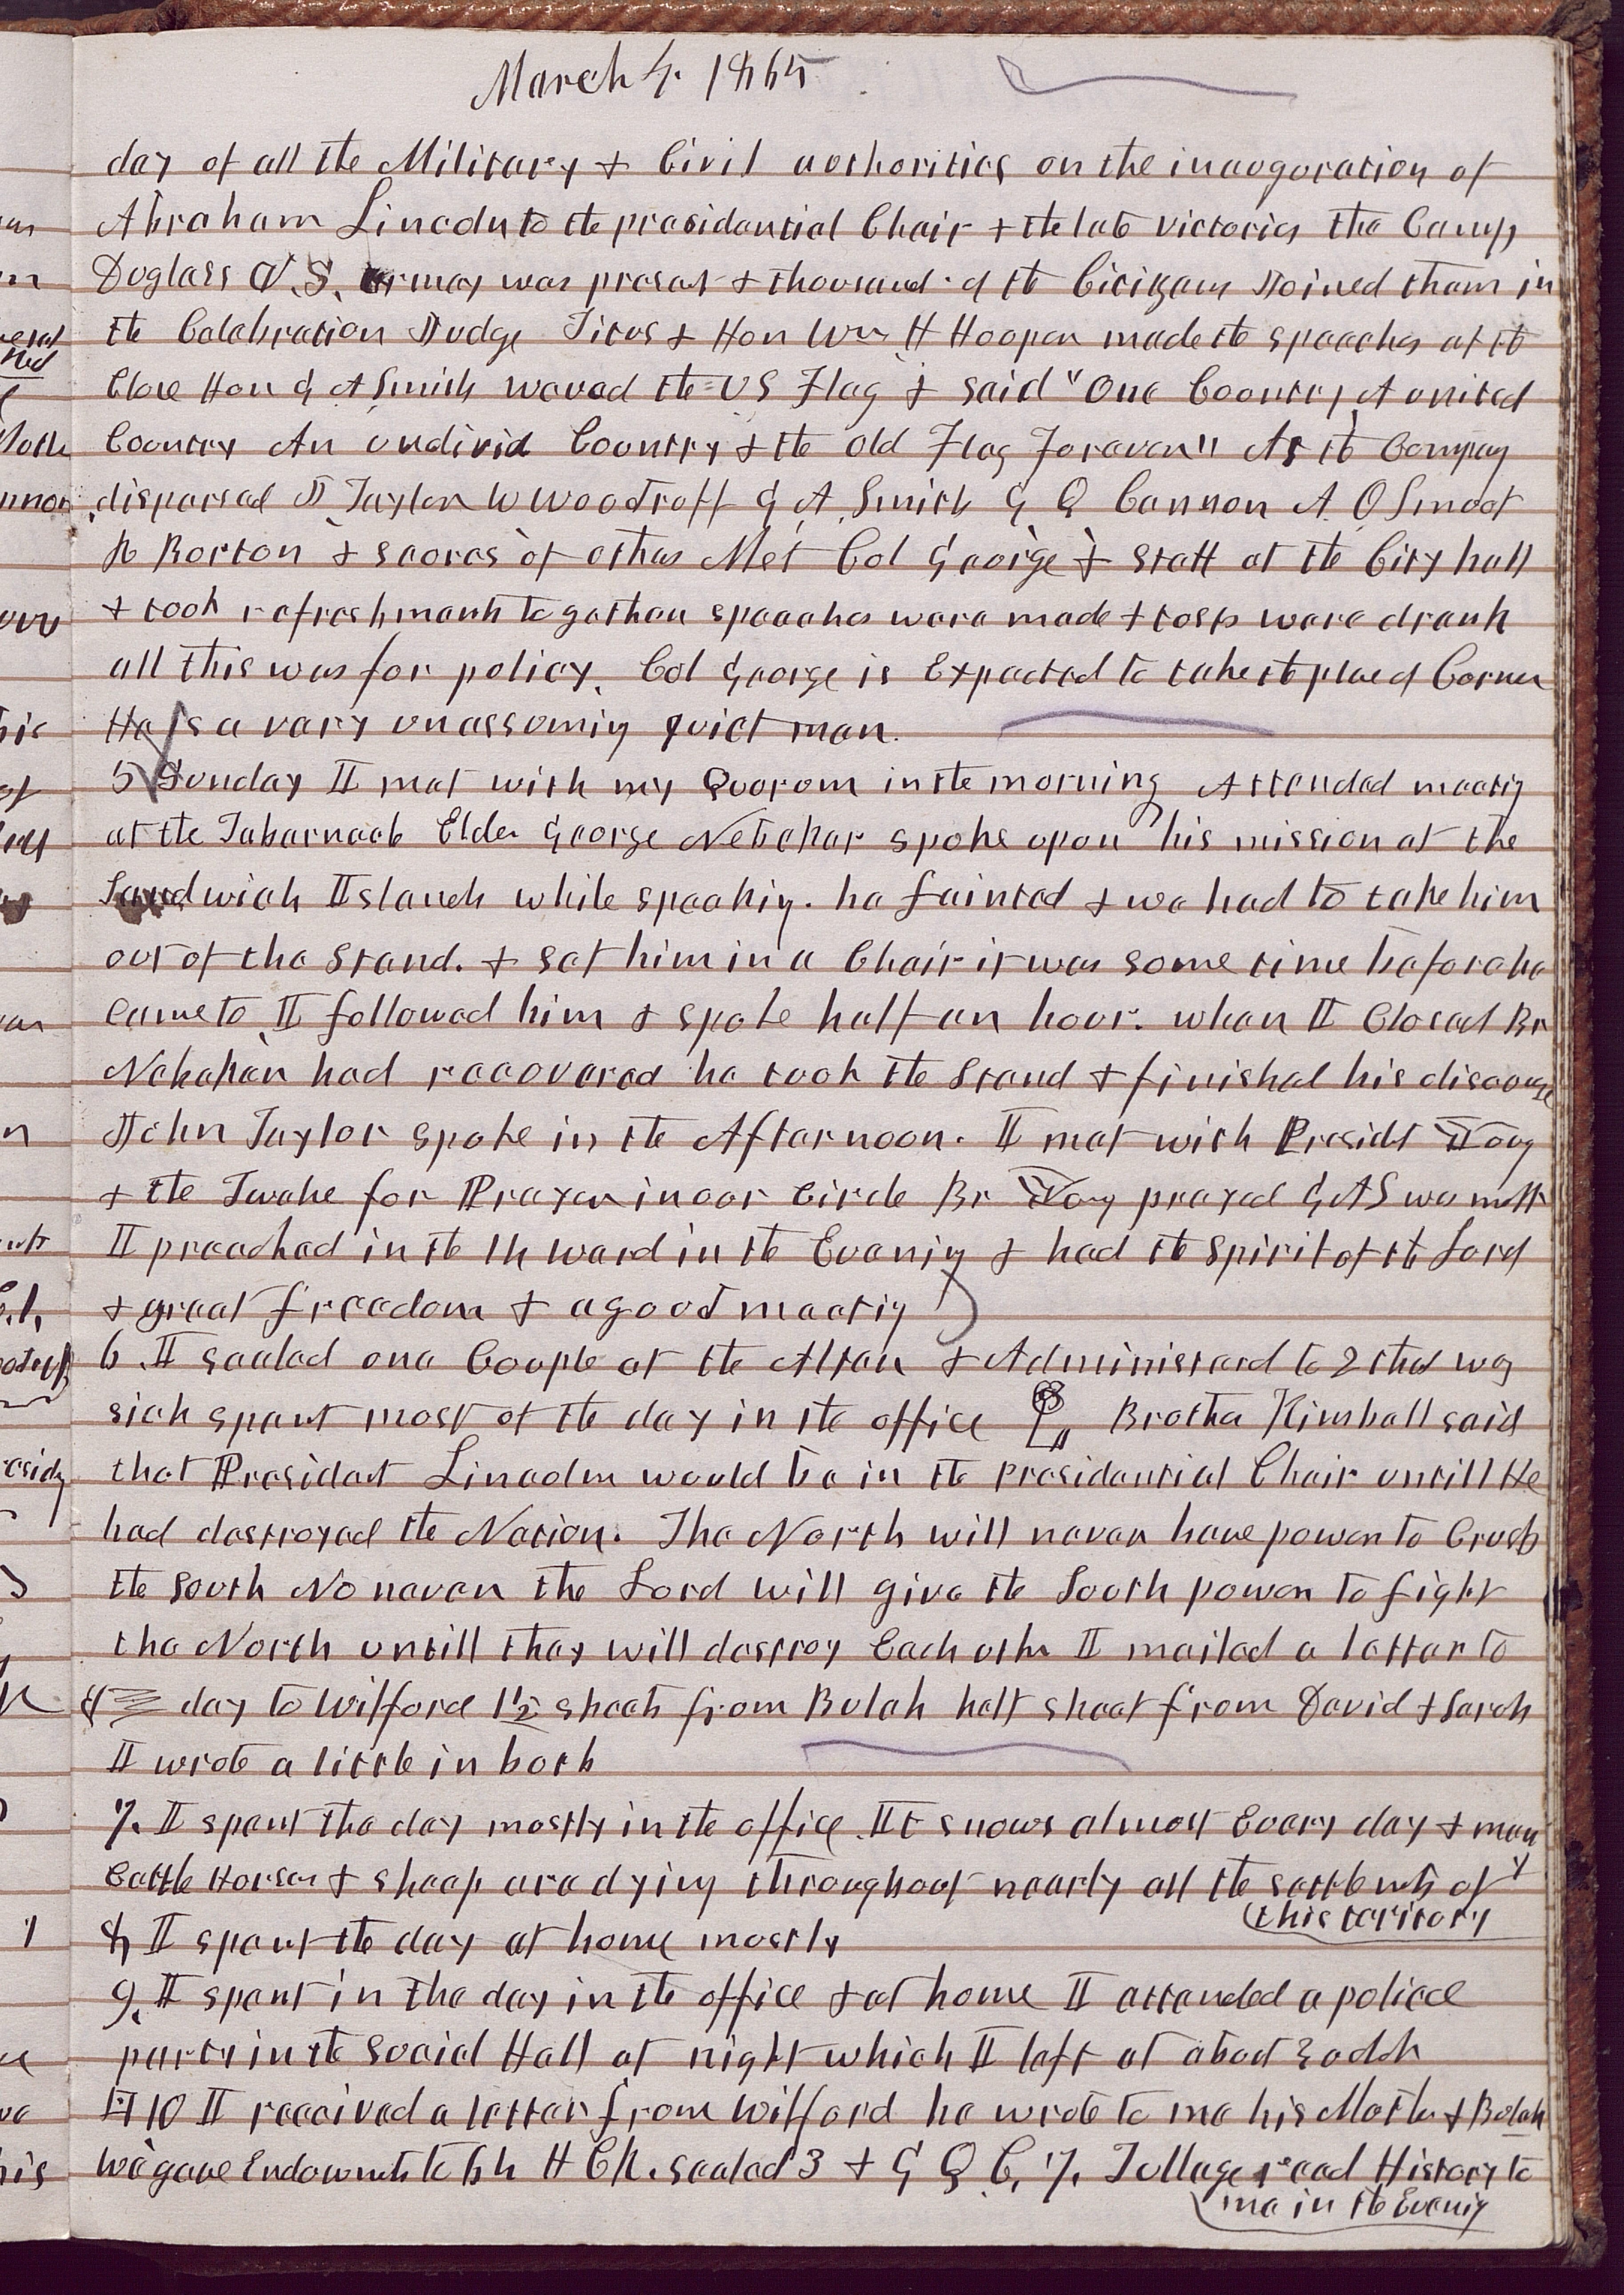 March 4. 1865
day of all the Military & Civil authorities on the inauguration of
Abraham Lincoln to the presidential Chair & the late victories the Camp
Duglass U.S. army was present & thousand of the Citizens Joined them in
the Celebration Judge Titus & Hon Wm H Hooper made the speeches at the
Close Hon G A Smith waved the US Flag & said "One Country, A united
Country An undivid Country & the old Flag Forever" As the Company
dispersed J Taylor W Woodruff G. A. Smith G Q Cannon A. O Smoot
R Burton & scores of others Met Col George & staff at the City hall
& took refreshments together speeches were made & tosts were drank
all this was for policy. Col George is Expected to take the place of Connor
He is a very unassuming quiet man.
5 Sunday I met with my Quorum in the morning Attended meeting
at the Tabernacle Elder George Nebeker spoke upon his mission at the
Sandwich Islands while speaking. he fainted & we had to take him
out of the stand. & set him in a Chair it was some time before he
came to I followed him & spoke half an hour. when I Closed Br
Nebeker had recovered he took the stand & finished his discourse
John Taylor spoke in the Afternoon. I met with Presidt Young
& the Twelve for Prayer in our Circle Br Young prayed G A S was mouth
I preached in the 14 ward in the Evening & had the spirit of the Lord
& great freedom & a good meeting
6 I sealed one Couple at the Altar & Administered to 2 that was
sick spent most of the day in the office Brother Kimball said
that President Lincoln would be in the presidential Chair untill He
had destroyed the Nation. The North will never have power to Crush
the South No never the Lord will give the South power to fight
the North untill they will destroy Each other I mailed a letter to
day to Wilford 1½ sheets from Bulah half sheet from David & Sarah
I wrote a little in both
7. I spent the day mostly in the office It snows almost Every day & many
Cattle Horses & sheep are dying throughout nearly all the settlements of
this teritory
8 I spent the day at home mostly
9. I spent in the day in the office & at home I attended a police
party in the Social Hall at night which I left at about 3 oclok
10 I received a letter from Wilford he wrote to me his Mother & Bulah
we gave Endowments to 54 H C K. sealed 3 & G Q C, 7. Tullage read History to
me in the Evening